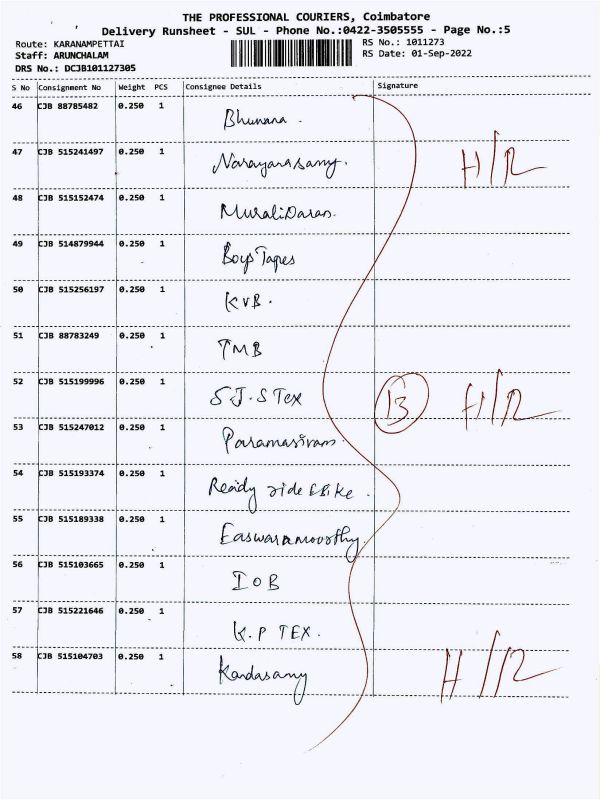 THE PROFESSIONAL COURIERS, Coimbatore
Delivery Runsheet - SUL - Phone No.:0422-3505555 - Page No.:5
Route: KARANAMPETTAI RS No.: 1011273
Staff: ARUNCHALAM RS Date: 01-Sep-2022
DRS No.: DCJB101127305
S No Consignment No Weight PCS Consignee Details Signature
46 CJB 88785482 0.250 1 Bhuvana.
47 CJB 515241497 0.250 1 Narayanasamy. H/R
48 CJB 515152474 0.250 1 MuraliDaran.
49 CJB 514879944 0.250 1 Boys Tapes
50 CJB 515256197 0.250 1 KVB.
51 CJB 88783249 0.250 1 TMB
52 CJB 515199996 0.250 1 S.J.S Tex 13 H/R
53 CJB 515247012 0.250 1 Paramasivam.
54 CJB 515193374 0.250 1 Ready ride Bike.
55 CJB 515189338 0.250 1 Easwaramoorthy.
56 CJB 515103665 0.250 1 IOB
57 CJB 515221646 0.250 1 K.P TEX.
58 CJB 515104703 0.250 1 Kandasamy H/R